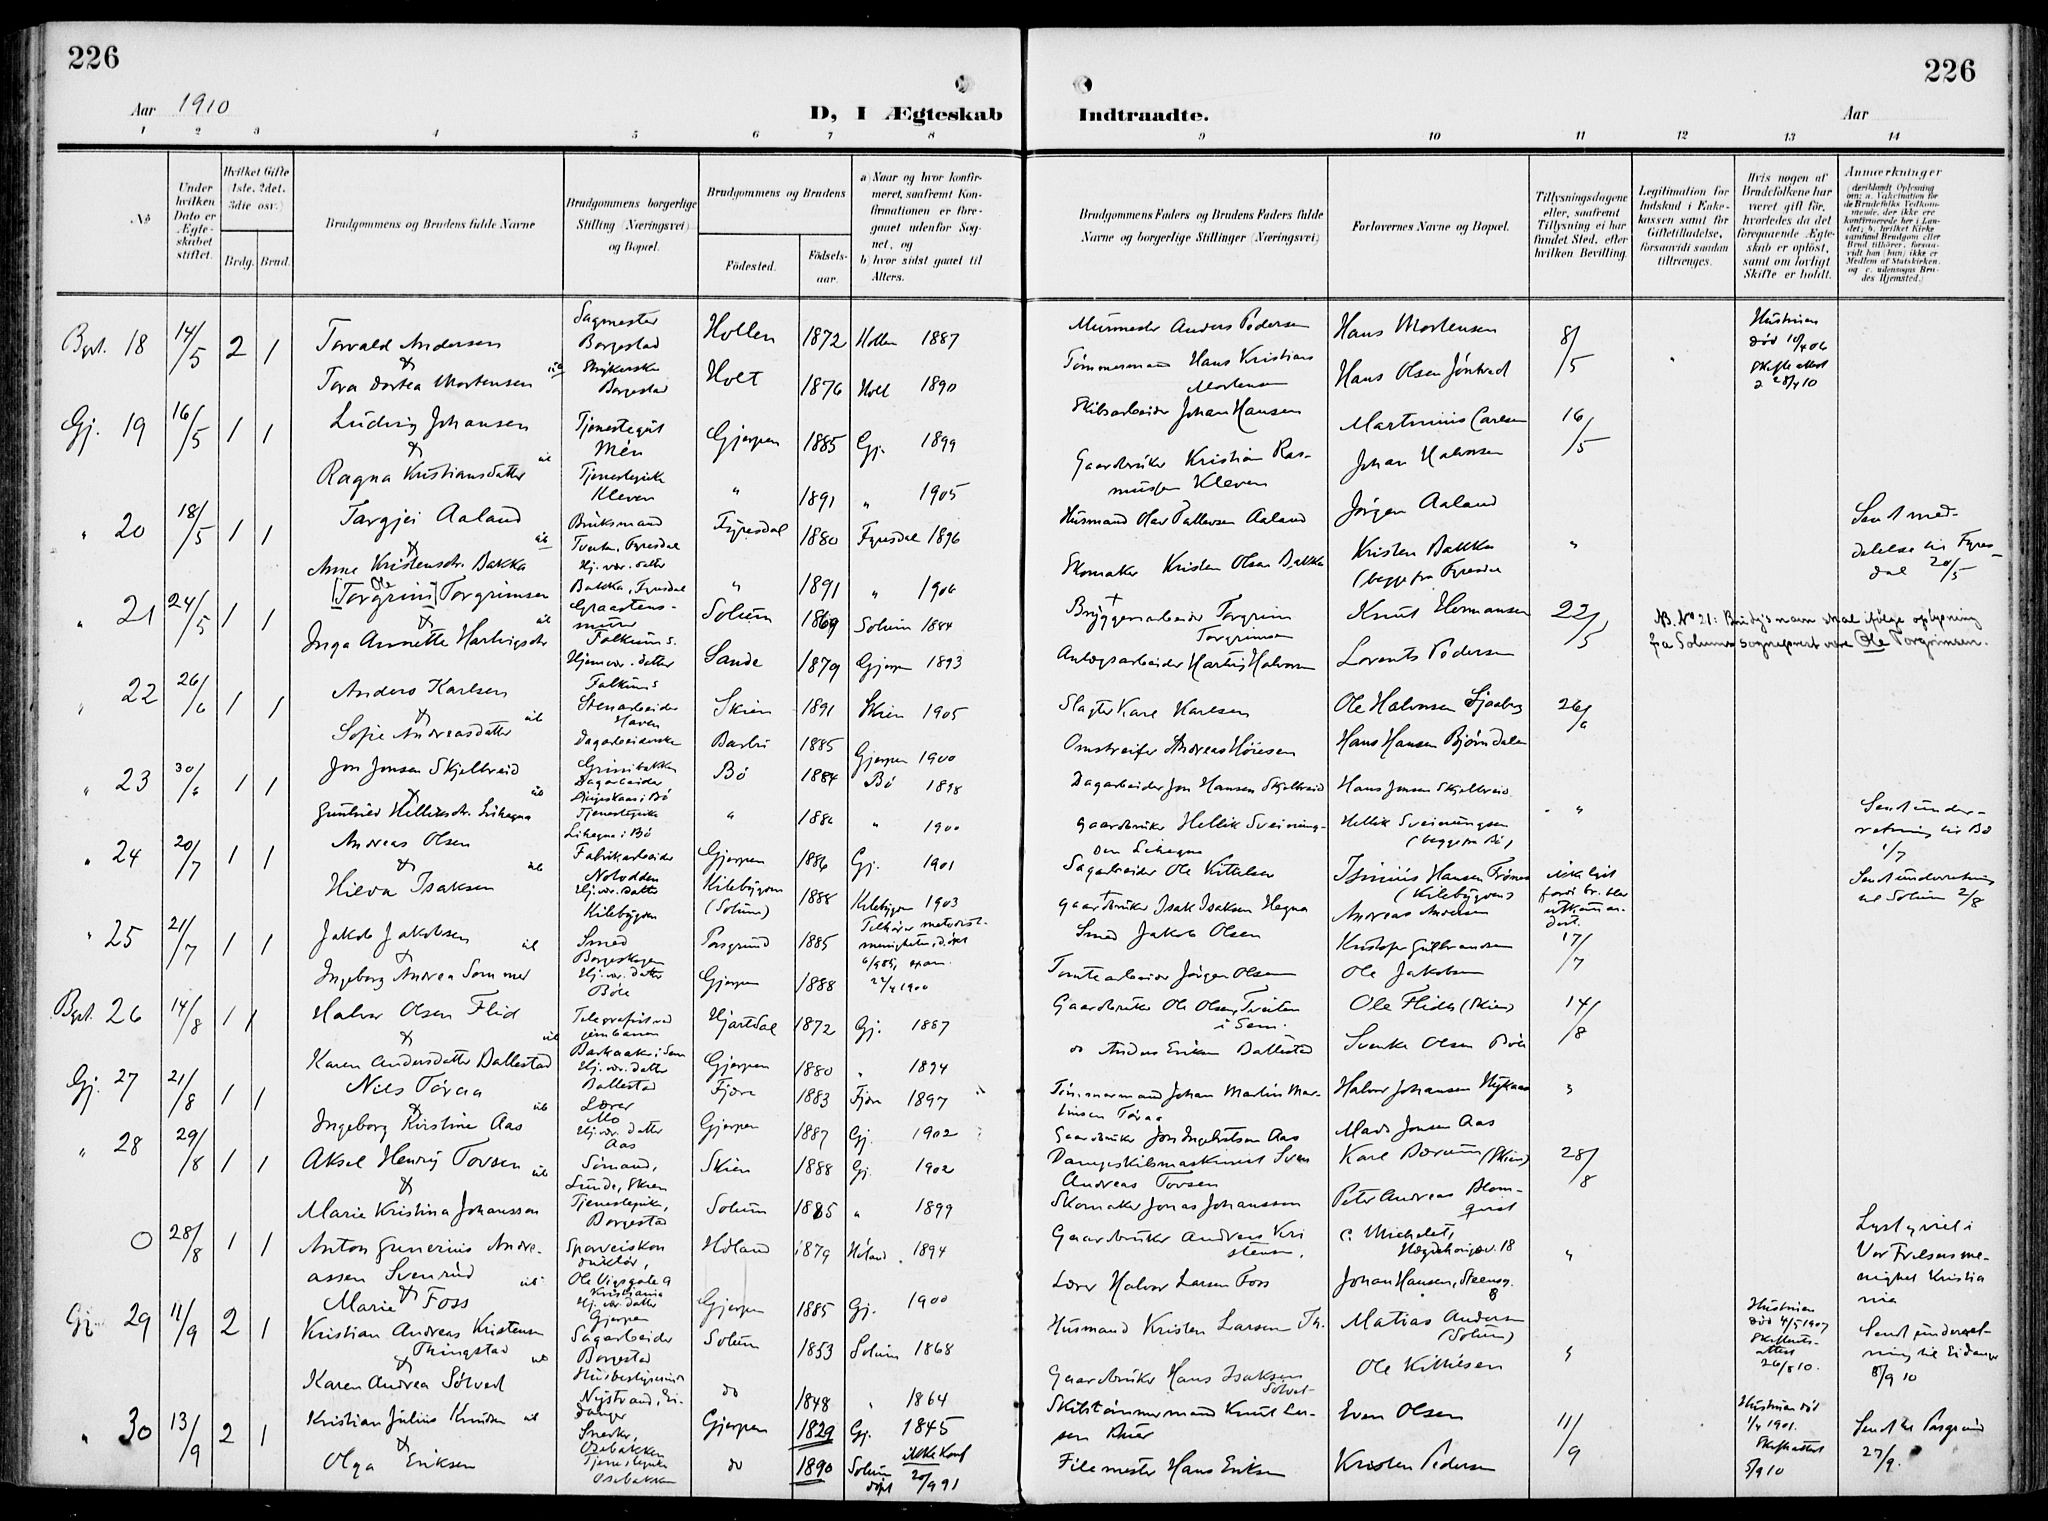 226
226
Aar 1910
D, I Ægteskab
Indtraadte.
Aar
1 2 3 4 5 6 7 8 9 10 11 12 13 14
No
Under hvilken Dato er Ægteskabet stiftet.
Hvilket Gifte 1ste, 2det, 3die osv.)
Brdg. Brud.
Brudgommens og Brudens fulde Navne
Brudgommens borgerlige Stilling (Næringsvei) og Bopæl.
Brudgommens og Brudens
Fødested.
Fødselsaar.
a) Naar og hvor konfirmeret, saafremt Konfirmationen er foregaaet udenfor Sognet, og
b) hvor sidst gaaet til Alters.
Brudgommens Faders og Brudens Faders fulde Navne og borgerlige Stillinger (Næringsvei)
Forlovernes Navne og Bopæl.
Tillysningsdagene eller, saafremt Tillysning ei har fundet Sted, efter hvilken Bevilling.
Legitimation for Indskud i Enkekassen samt for Giftetilladelse, forsaavidt saadan tiltrænges.
Hvis nogen af Brudefolkene har været gift før, hvorledes da det foregaaende Ægteskab er opløst, samt om lovligt Skifte er holdt.
Anmærkninger
(deriblandt Oplysning om: a. Vakcination for de Brudefolks Vedkommende, der ikke ere konfirmerede her i Landet; b. hvilket Kirkesamfund Brudgom eller Brud tilhører, forsaavidt han (hun) ikke er Medlem af Statskirken, og c. udensogns Brudes Hjemsted.)
18 14/5 2 1 Torvald Andersen Sagmester Borgestad Hollen 1872 Hollen 1887 Murmester Anders Pedersen Hans Mortensen 8/5 Hustruen død 10/4 06
Tora Dortea Mortensen Strykerske Borgestad Holt 1876 Holt 1890 Tømmermand Hans Kristian Mortensen Hans Olsen
Gj. 19 16/5 1 1 Ludvig Johansen Tjenestegut Gjerpen 1885 Gj. 1899 Skibsarbeider Johan Hansen Martinius Carlsen 16/5
Ragna Kristiansdatter Tjenestepike Kleven " 1891 " 1905 Gaardbruker Kristian Rasmussen Kleven Johan Halvorsen
" 20 18/5 1 1 Targjei Aaland Bruksmand Fyresdal 1880 Fyresdal 1896 Husmand Aaland Jørgen Aaland " Sendt meddelelse til Fyresdal 20/5
Anne Kristensdtr. Bakka Hj.vær. datter Bakka, Fyresdal " 1891 " 1906 Skomaker Kristen Olsen Bakka Kristen Bakka (begge fra Fyresdal
" 21 24/5 1 1 [Torgrim] Ole Torgrimsen Graastensmurer Falkum s. Solum 1869 Solum 1884 Bryggeriarbeider Torgrim Torgrimsen Knut Hermansen 22/5 NB. No 21: Brudg's navn skal ifølge oplysning fra Solum sogneprest være Ole Torgrimsen.
Inga Annette Hartvigsdtr Hjemvær. datter Falkum s Sande 1879 Gjerpen 1893 Anlægsarbeider Hartvig Halvorsen Lorents Pedersen
" 22 26/6 1 1 Anders Karlsen Stenarbeider Haven Skien 1891 Skien 1905 Slagter Karl Karlsen Ole Halvorsen 26/6
Sofie Andreasdatter Dagarbeiderske Grinibakken Barbu 1885 Gjerpen 1900 Omstreifer Andreas Hansen Hans Hansen Bjørndalen
" 23 30/6 1 1 Jon Jonsen Skjelbreid Dagarbeider Bø 1884 Bø 1898 Dagarbeider Jon Hansen Skjelbreid Hans Jonsen Skjelbreid "
Gunhild Helliksdtr. Lihegna Tjenestepike Lihegna i Bø " 1886 " 1900 Gaardbruker Hellik Sveinungsen Lihegna Hellik Sveinungsen (begge fra Bø) Sendt underretning til Bø 1/7
" 24 20/7 1 1 Andreas Olsen Fabrikarbeider Notodden Gjerpen 1886 Gj. 1901 Sagarbeider Ole Kittilsen Hansen (Kilebygden) ikke lyst fordi br. blev utkommandert. Sendt underretning til Solum 2/8
Hilda Isaksen Hj.vær. datter Kilebygden Kilebygden (Solum) 1888 Kilebygden 1903 Gaardbruker Isak Isaksen Hegna Andreas Andersen
" 25 21/7 1 1 Jakob Jakobsen Smed Borgeskogen Porsgrund 1885 Tilhører metodistmenigheten, døpt Smed Jakob Olsen Kristofer Gulbrandsen 17/7
Ingeborg Andrea Sommer Hj.vær. datter Bøle Gjerpen 1888 2/4 1900 Tomtearbeider Jørgen Olsen Ole Jakobsen
26 14/8 1 1 Halvor Olsen Flid Telegrafist ved jernbanen Barkaaker i Sem Hjartdal 1872 Gj. 1887 Gaardbruker Ole Olsen Tveiten i Sem. Ole Flid (Skien) 14/8
Karen Andersdatter Ballestad Hj.vær. datter Ballestad Gjerpen 1880 " 1894 do Anders Eriksen Ballestad Svenke Olsen Bøle
Gj. 27 21/8 1 1 Nils Tøraa Lærer Mo Fjære 1883 Fjære 1897 Tømmermand Johan Martin Martinsen Tøraa Halvor Johansen "
Ingeborg Kirstine Aas Hj.vær. datter Aas Gjerpen 1887 Gj. 1902 Gaardbruker Jon Ingebretsen Aas Mads Jonsen Aas
" 28 29/8 1 1 Aksel Henry Tovsen Sømand, Lunde, Skien Skien 1888 Gj. 1902 Dampskibsmaskinist Sven Andreas Tovsen Karl (Skien) 28/8
Marie Kristina Johansson Tjenestepike, Borgestad Solum 1885 " 1899 Skomaker Jonas Johansson Peter Andreas Blomquist
0 28/8 1 1 Anton Gunerius Andreassen Svenrud Sporveiskonduktør, Ole Vigsgate 9 Kristiania Høland 1879 Høland 1894 Gaardbruker Andreas Kristensen, C. Michelet, Hægdehaugsv. 18 " Lyst i Vor Frelsers menighet Kristiania
Marie Foss Hj.vær. datter Gjerpen Gjerpen 1885 Gj. 1900 Lærer Halvor Larsen Foss Johan Hansen, Steensg. 8
Gj. 29 11/9 2 1 Kristian Andreas Kristensen Thingstad Sagarbeider Borgestad Solum 1853 Solum 1868 Husmand Kristen Larsen Th. Matias Andersen (Solum) " Hustruen død 4/5 1907 Skifteattest 26/8 10. Sendt underretning til Eidanger 8/9 10
Karen Andrea Sølvest Husbestyrerinde Nystrand, Eidanger do 1848 " 1864 Gaardbruker Hans Isaksen Sølvest Ole Kittilsen
" 30 13/9 2 1 Kristian Julius Knudsen Snedker, Osebakken Gjerpen 1829 Gj. 1845 Skibstømmermand Knut Larsen Even Olsen 11/9 Hustruen død 1/4 1901. Skifteattest 5/9 10 Sendt til Porsgrund 27/9.
Olga Eriksen Tjenestepike Osebakken do 1890 Solum døpt ikke konf 20/9 91 Filemester Hans Eriksen Kristen Pedersen